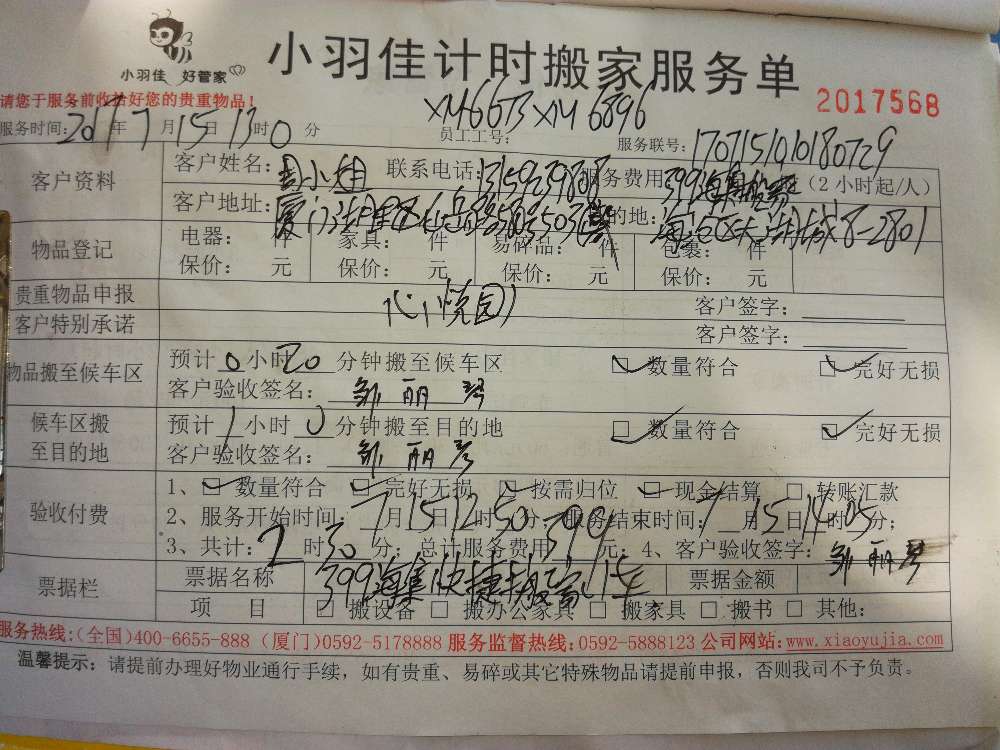 小羽佳 好管家
小羽佳计时搬家服务单
请您于服务前收拾好您的贵重物品！
2017568
XM6673 XM6896
服务时间：2017年7月15日13时0分 员工工号： 服务联号：170715101080729
客户资料
客户姓名：周小姐 联系电话： 服务费用 399 （2小时起/人）
客户地址：厦门湖里区 的地： 8-2801
物品登记
电器： 件 家具： 件 易碎品： 件 包裹： 件
保价： 元 保价： 元 保价： 元 保价： 元
贵重物品申报 客户签字：
（心悦园）
客户特别承诺 客户签字：
物品搬至候车区
预计0小时20分钟搬至候车区 数量符合 完好无损
客户验收签名：邹丽琴
候车区搬至目的地
预计1小时0分钟搬至目的地 数量符合 完好无损
客户验收签名：邹丽琴
验收付费
1、数量符合 完好无损 按需归位 现金结算 转账汇款
2、服务开始时间：7月15日12时50分；服务结束时间：7月15日14时05分；
3、共计：2时30分；总计服务费用399元；4、客户验收签字：邹丽琴
票据栏
票据名称 399海集快捷搬家1车 票据金额
项 目 搬设备 搬办公家具 搬家具 搬书 其他：
服务热线：(全国)400-6655-888 (厦门)0592-5178888 服务监督热线：0592-5888123 公司网站：www.xiaoyujia.com
温馨提示：请提前办理好物业通行手续，如有贵重、易碎或其它特殊物品请提前申报，否则我司不予负责。